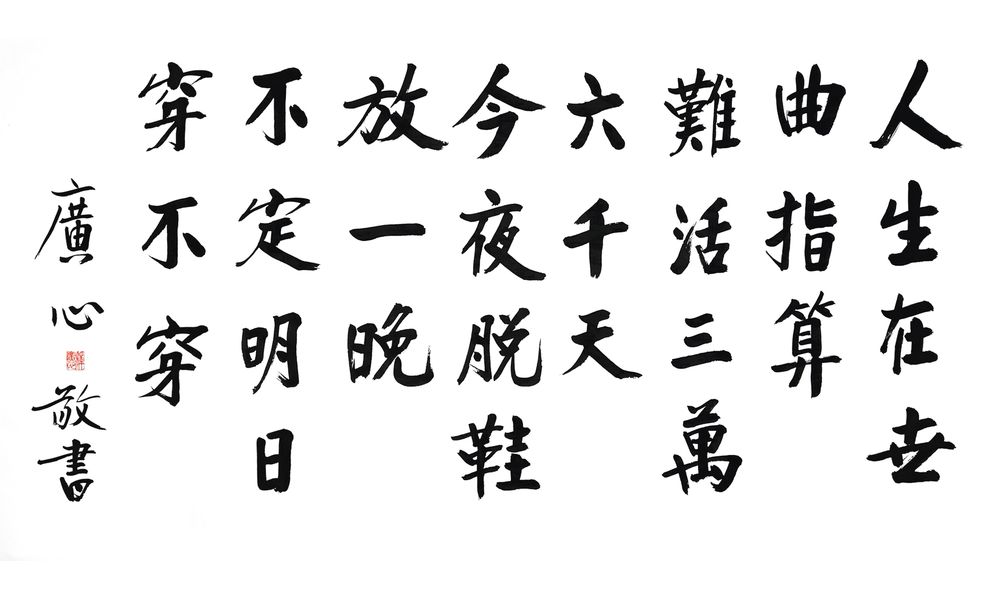 人生在世
曲指算
難活三萬
六千天
今夜脱鞋
放一晚
不定明日
穿不穿
廣心敬書